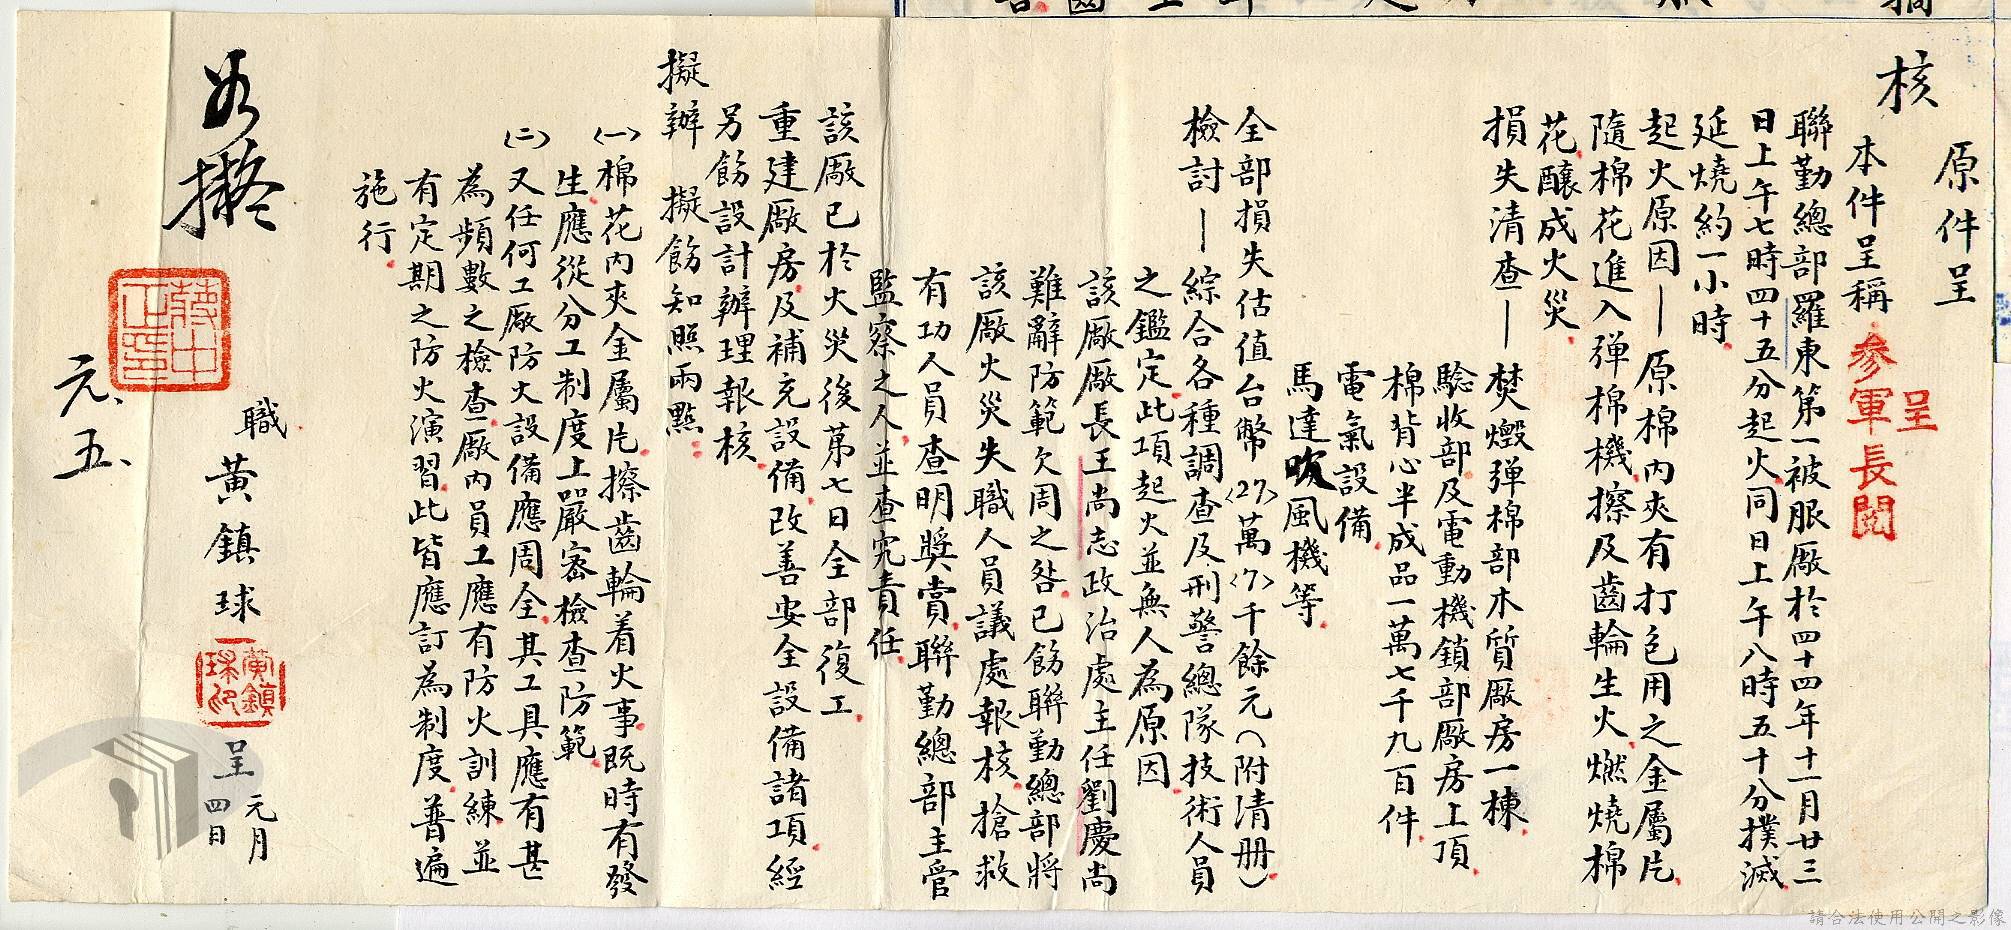 原件呈
核
呈
參軍長閱
本件呈稱
聯勤總部羅東第一被服廠於四十四年十一月廿三
日上午七時四十五分起火同日上午八時五十分撲滅
延燒約一小時
起火原因—原棉內夾有打包用之金屬片
隨棉花進入彈棉機擦及齒輪生火燃燒棉
花釀成火災
損失清查—焚燬彈棉部木質廠房一棟
騐收部及電動機鎖部廠房上頂
棉背心半成品一萬七千九百件
電氣設備
馬達吹風機等
全部損失估值台幣<27>萬<7>千餘元(附清册)
檢討—綜合各種調查及刑警總隊技術人員
之鑑定此項起火並無人為原因
該廠廠長王尚志政治處主任劉慶尚
難辭防範欠周之咎已飭聯勤總部將
該廠火災失職人員議處報核搶救
有功人員查明獎賞聯勤總部主管
監察之人並查究責任
該廠已於火災後第七日全部復工
重建廠房及補充設備改善安全設備諸項經
另飭設計辦理報核
擬辦 擬飭知照兩點
(一)棉花內夾金屬片擦齒輪着火事既時有發
生應從分工制度上嚴密檢查防範
(二)又任何工廠防火設備應周全其工具應有甚
為頻數之檢查廠內員工應有防火訓練並
有定期之防火演習此皆應訂為制度普遍
施行
職 黃鎮球 呈 元月
四日
黃鎮球印
如擬
蔣中正印
元、五、
請合法使用公開之影像